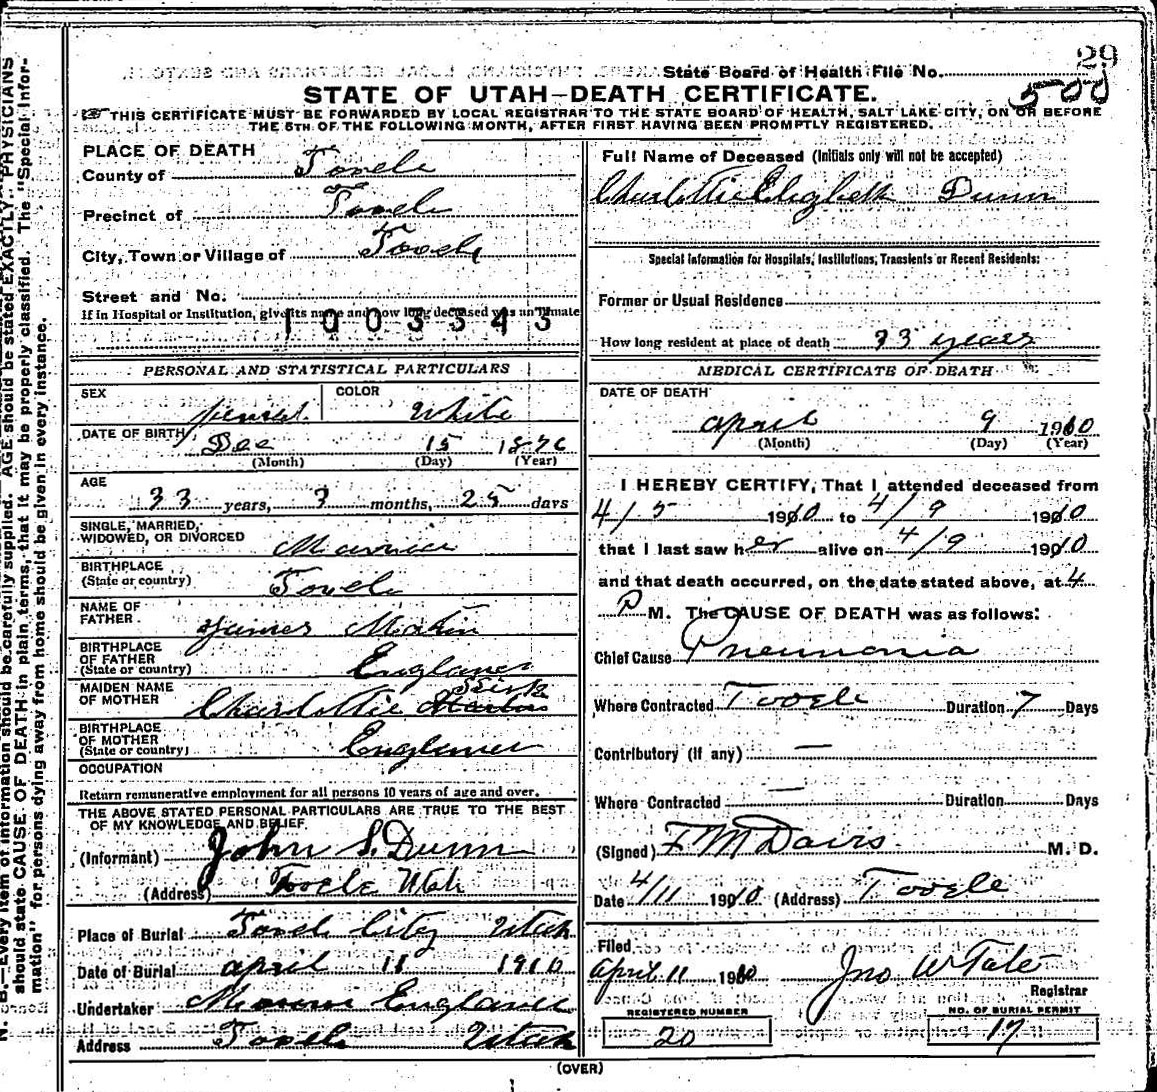 29
State Board of Health File No. 500
STATE OF UTAH—DEATH CERTIFICATE.
THIS CERTIFICATE MUST BE FORWARDED BY LOCAL REGISTRAR TO THE STATE BOARD OF HEALTH, SALT LAKE CITY, ON OR BEFORE
THE 5TH OF THE FOLLOWING MONTH, AFTER FIRST HAVING BEEN PROMPTLY REGISTERED.
PLACE OF DEATH
County of Tooele
Precinct of Tooele
City, Town or Village of Tooele
Street and No.
If in Hospital or Institution, give its name and how long deceased was an inmate
1003343
PERSONAL AND STATISTICAL PARTICULARS
SEX Female COLOR White
DATE OF BIRTH Dec 15 1876
(Month) (Day) (Year)
AGE
33 years, 3 months, 25 days
SINGLE, MARRIED,
WIDOWED, OR DIVORCED Married
BIRTHPLACE
(State or country) Tooele
NAME OF
FATHER James Martin
BIRTHPLACE
OF FATHER
(State or country) England
MAIDEN NAME
OF MOTHER Charlottie
BIRTHPLACE
OF MOTHER
(State or country) England
OCCUPATION
Return remunerative employment for all persons 10 years of age and over.
THE ABOVE STATED PERSONAL PARTICULARS ARE TRUE TO THE BEST
OF MY KNOWLEDGE AND BELIEF.
(Informant) John S. Dunn
(Address) Tooele Utah
Place of Burial Tooele City Utah
Date of Burial april 11 1910
Undertaker England
Address Tooele Utah
Full Name of Deceased (Initials only will not be accepted)
Charlottie Elizabeth Dunn
Special Information for Hospitals, Institutions, Transients or Recent Residents:
Former or Usual Residence
How long resident at place of death 33 years
MEDICAL CERTIFICATE OF DEATH
DATE OF DEATH
april 9 1910
(Month) (Day) (Year)
I HEREBY CERTIFY, That I attended deceased from
4/5 1910 to 4/9 1910
that I last saw her alive on 4/9 1910
and that death occurred, on the date stated above, at 4
P M. The CAUSE OF DEATH was as follows:
Chief Cause Pneumonia
Where Contracted Tooele Duration 7 Days
Contributory (if any) —
Where Contracted — Duration Days
(Signed) F M Davis M. D.
Date 4/11 1910 (Address) Tooele
Filed
April 11 1910 Jno W Tate
Registrar
REGISTERED NUMBER
20
NO. OF BURIAL PERMIT
17
(OVER)
N. B.—Every item of information should be carefully supplied. AGE should be stated EXACTLY. PHYSICIANS
should state CAUSE OF DEATH in plain terms, that it may be properly classified. The "Special Infor-
mation" for persons dying away from home should be given in every instance.